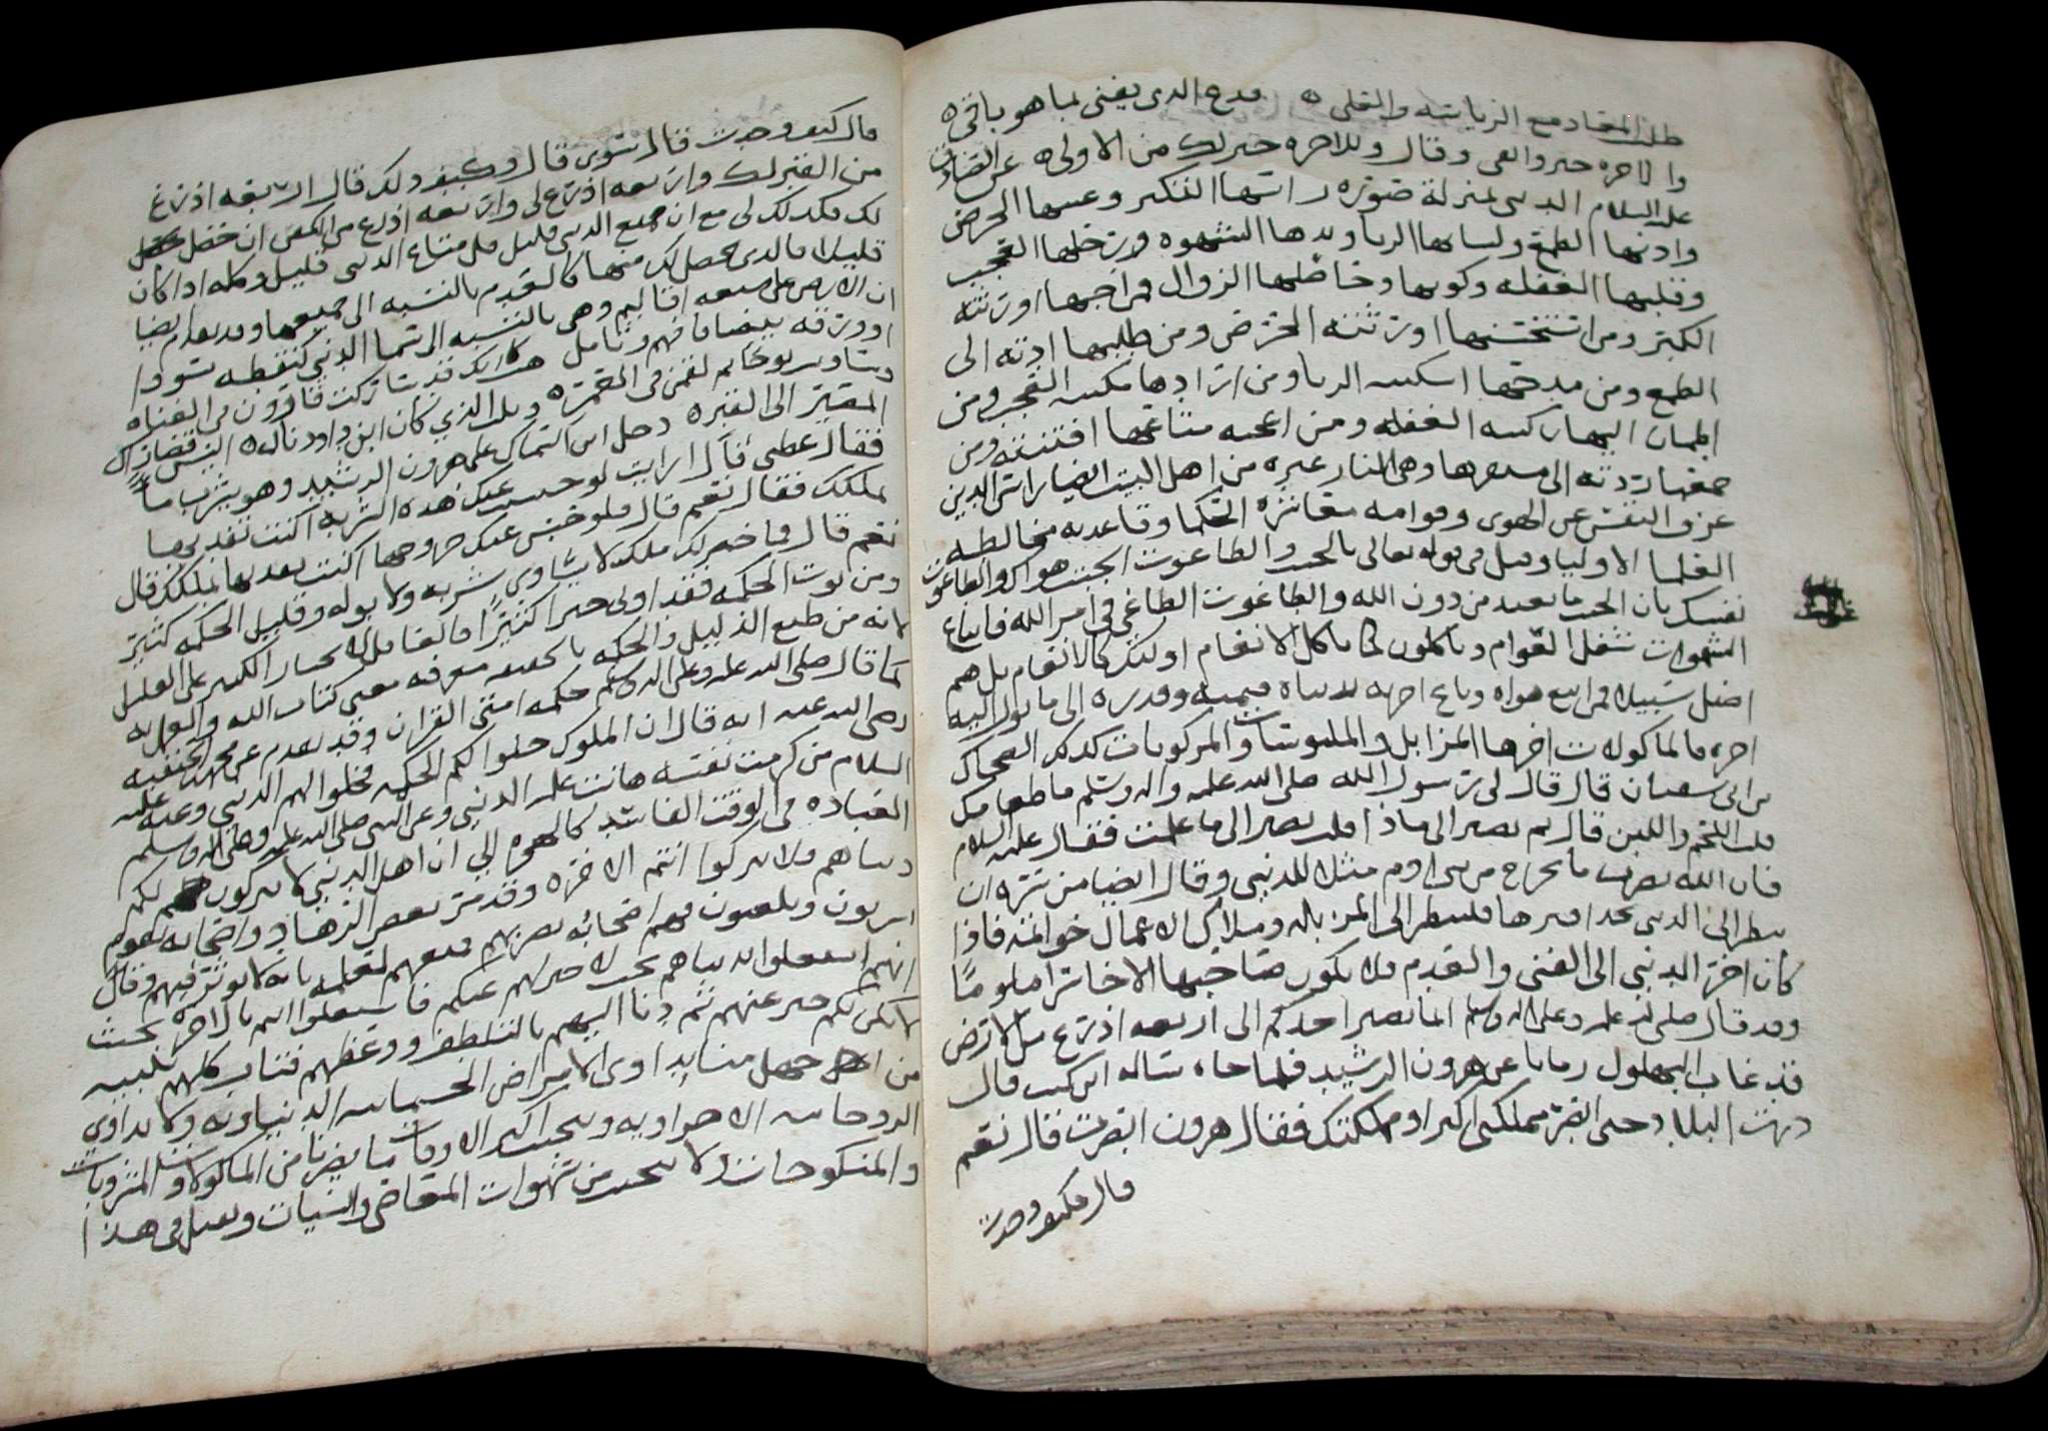 طلب المعاد مع الرياسة والقلى ه فدع الدى يفنى لما هو باقى ه
والاخره خير وابقى وقال وللاخره خير لك من الاولى ه عن الصادق
عليه السلام الدنيى بمنزلة صوره راسها التكبر وعينها الحرص
واذنها الطمع ولسانها الريا ويدها الشهوه ورجلها العجب
وقلبها الغفله وكونها وحاصلها الزوال فمن احبها اورثته
الكبر ومن استحسنها اورثته الحرص ومن طلبها اردته الى
الطمع ومن مدحها اكسته الريا ومن ارادها مكنته العجب ومن
اطمان اليها اركبته الغفله ومن اعجبه متاعها افتنته ومن
جمعها ردته الى مستقرها وهى النار غيره من اهل البيت ايضا راس الدين
عزوف النفس عن الهوى وقوامه معاشرة الحكما وقاعدته مخالطة
العلما الاوليا وقيل فى قوله تعالى بالجبت والطاغوت الجبت هواك والطاغوت
نفسك بان الجبت ما يعبد من دون الله والطاغوت الطاغى فى امر الله فاتباع
الشهوات شغل العوام وياكلون كما تاكل الانعام اولئك كالانعام بل هم
اضل سبيلا فمن اتبع هواه وباع اخرته بدنياه فقيمته وقدره الى ما يول اليه
اخره فالماكولات اخرها المزابل والملبوسات والمركوبات كذلك الضحاك
بن ابى سفيان قال قال لى رسول الله صلى الله عليه واله وسلم ما طعامك
قلت اللحم واللبن قال ثم يصير الى ماذا قلت يصير الى ما علمت فقال عليه السلام
فان الله ضرب ما يخرج من بنى ادم مثلا للدنيى وقال ايضا من سره ان
ينظر الى الدنيى بحذافيرها فلينظر الى المزبله وملاك الاعمال خواتمه فاذا
كان اخر الدنيى الى الفنى والعدم فلا يكون صاحبها الا خاسرا ملوما
وقد قال صلى الله عليه وعلى اله وسلم انما يصير احدكم الى اربعه اذرع من الارض
قد غاب البهلول زمانا عن هرون الرشيد فلما جاء ساله اين كنت قال
درت البلاد حتى ابصر مملكتى اكبر او مملكتك فقال هرون ابصرت قال نعم
قال فكيف وجدت
قال كيف وجدت قال استوى قال وكيف ذلك قال اربعه اذرع
من القبر لك واربعه اذرع لى واربعه اذرع من الكفن ان حصل
لك فكذلك لى مع ان جميع الدنيى قليل قل متاع الدنيى قليل وكله اذا كان
قليلا فالذى يحصل لك منها كالعدم بالنسبه الى جميعها وقد تقدم ايضا
ان الارض على سبعه اقاليم وهى بالنسبه الى السما الدنيى كنقطه سودا
او ورقه بيضا فافهم وتامل هذا انك قد شاركت قارون فى الغناه
وساوى يوحانم لقمن فى العمره وملك الذي كان ابن داود ناله ه اليس قصارك
المصير الى القبر ه دخل ابن السماك على هرون الرشيد وهو يشرب ماءً
فقال عظنى فقال ارايت لو حبست عنك هذه الشربه اكنت تفديها
بملكك فقال نعم قال فلو حبس عنك خروجها اكنت تفديها بملكك قال
نعم قال فما خير لك ملك لا يساوى شربه ولا بوله وقليل الحكمه كثير
ومن يوت الحكمه فقد اوتى خيرا كثيرًا فالعاقل لا يختار الكثير على القليل
لانه من طبع الذليل والحكمه بالحقيقه معرفه معنى كتاب الله والعمل به
كما قال صلى الله عليه وعلى اله وسلم حكمه امتى القران وقد تقدم عن محمد بن الحنفيه
رضى الله عنه انه قال ان الملوك خلوا لكم الحكمه فخلوا لهم الدنيى وعنه عليه
السلام من كرمت نفسه هانت عليه الدنيى وعن النبى صلى الله عليه وعلى اله وسلم
العباده فى الوقت الفاسد كالهجره الي ان اهل الدنيى لا يتركون لكم
دنياهم فلا تتركوا انتم الاخره وقد مر بعض الزهاد واصحابه بقوم
يشربون ويلعبون فهم اصحابه بضربهم فمنعهم لعلمه بانه لا يوثر فيهم وقال
انهم اشتغلوا بدنياهم بحيث لا خير لهم عنكم فاشتغلوا انتم بالاخره بحيث
لا يكن لكم خير عنهم ثم دنا اليهم بالتلطف ووعظهم فتاب كلهم تلبيه
من جهل منا يداوى الامراض الجسمانيه الدنياويه ولا يداوى
الروحانيه الاخراويه ويجتنب اكثر الاوقات ما يضرنا من الماكولات والمشروبات
والمنكوحات ولا يجتنب من شهوات المعاصى والسيات ونعمل فى هذا